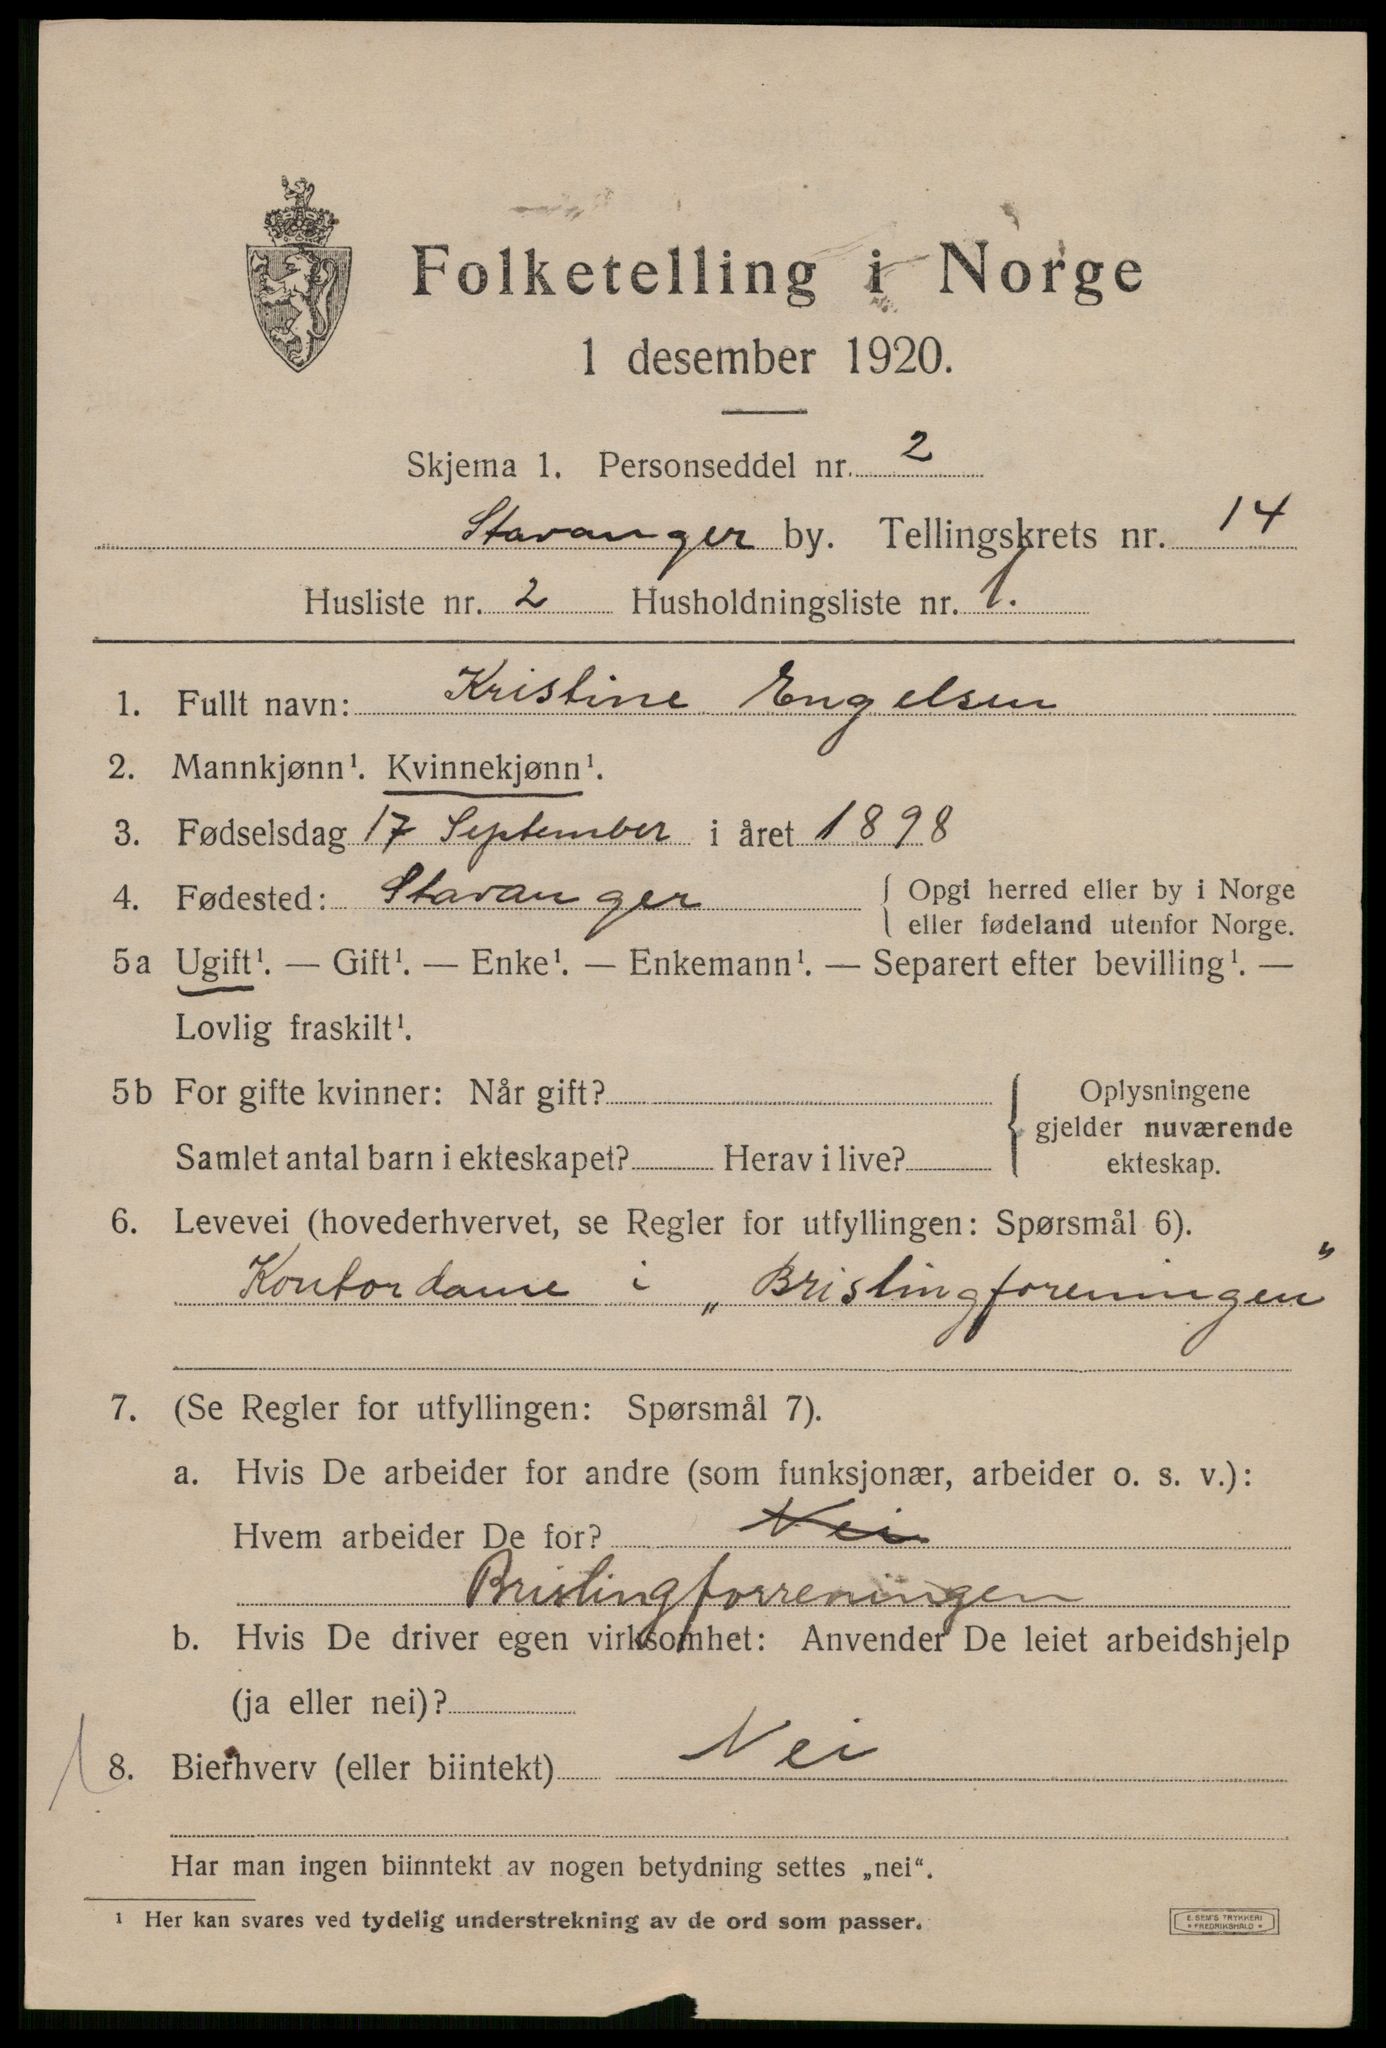 Folketelling i Norge
1 desember 1920.
Skjema 1. Personseddel nr. 2
Stavanger by. Tellingskrets nr. 14
Husliste nr. 2 Husholdningsliste nr. 1.
1. Fullt navn: Kristine Engelsen
2. Mannkjønn¹. Kvinnekjønn¹.
3. Fødselsdag 17 September i året 1898
4. Fødested: Stavanger { Opgi herred eller by i Norge
eller fødeland utenfor Norge.
5a Ugift¹. — Gift¹. — Enke¹. — Enkemann¹. — Separert efter bevilling¹. —
Lovlig fraskilt¹.
5b For gifte kvinner: Når gift?
Samlet antal barn i ekteskapet? Herav i live?
{ Oplysningene
gjelder nuværende
ekteskap.
6. Levevei (hovederhvervet, se Regler for utfyllingen: Spørsmål 6).
Kontordame i „Brislingforeningen"
7. (Se Regler for utfyllingen: Spørsmål 7).
a. Hvis De arbeider for andre (som funksjonær, arbeider o. s. v.):
Hvem arbeider De for? Nei
Brislingforreningen
b. Hvis De driver egen virksomhet: Anvender De leiet arbeidshjelp
(ja eller nei)?
8. Bierhverv (eller biintekt) Nei
Har man ingen biinntekt av nogen betydning settes „nei".
¹ Her kan svares ved tydelig understrekning av de ord som passer.
E. SEM'S TRYKKERI
* FREDRIKSHALD *